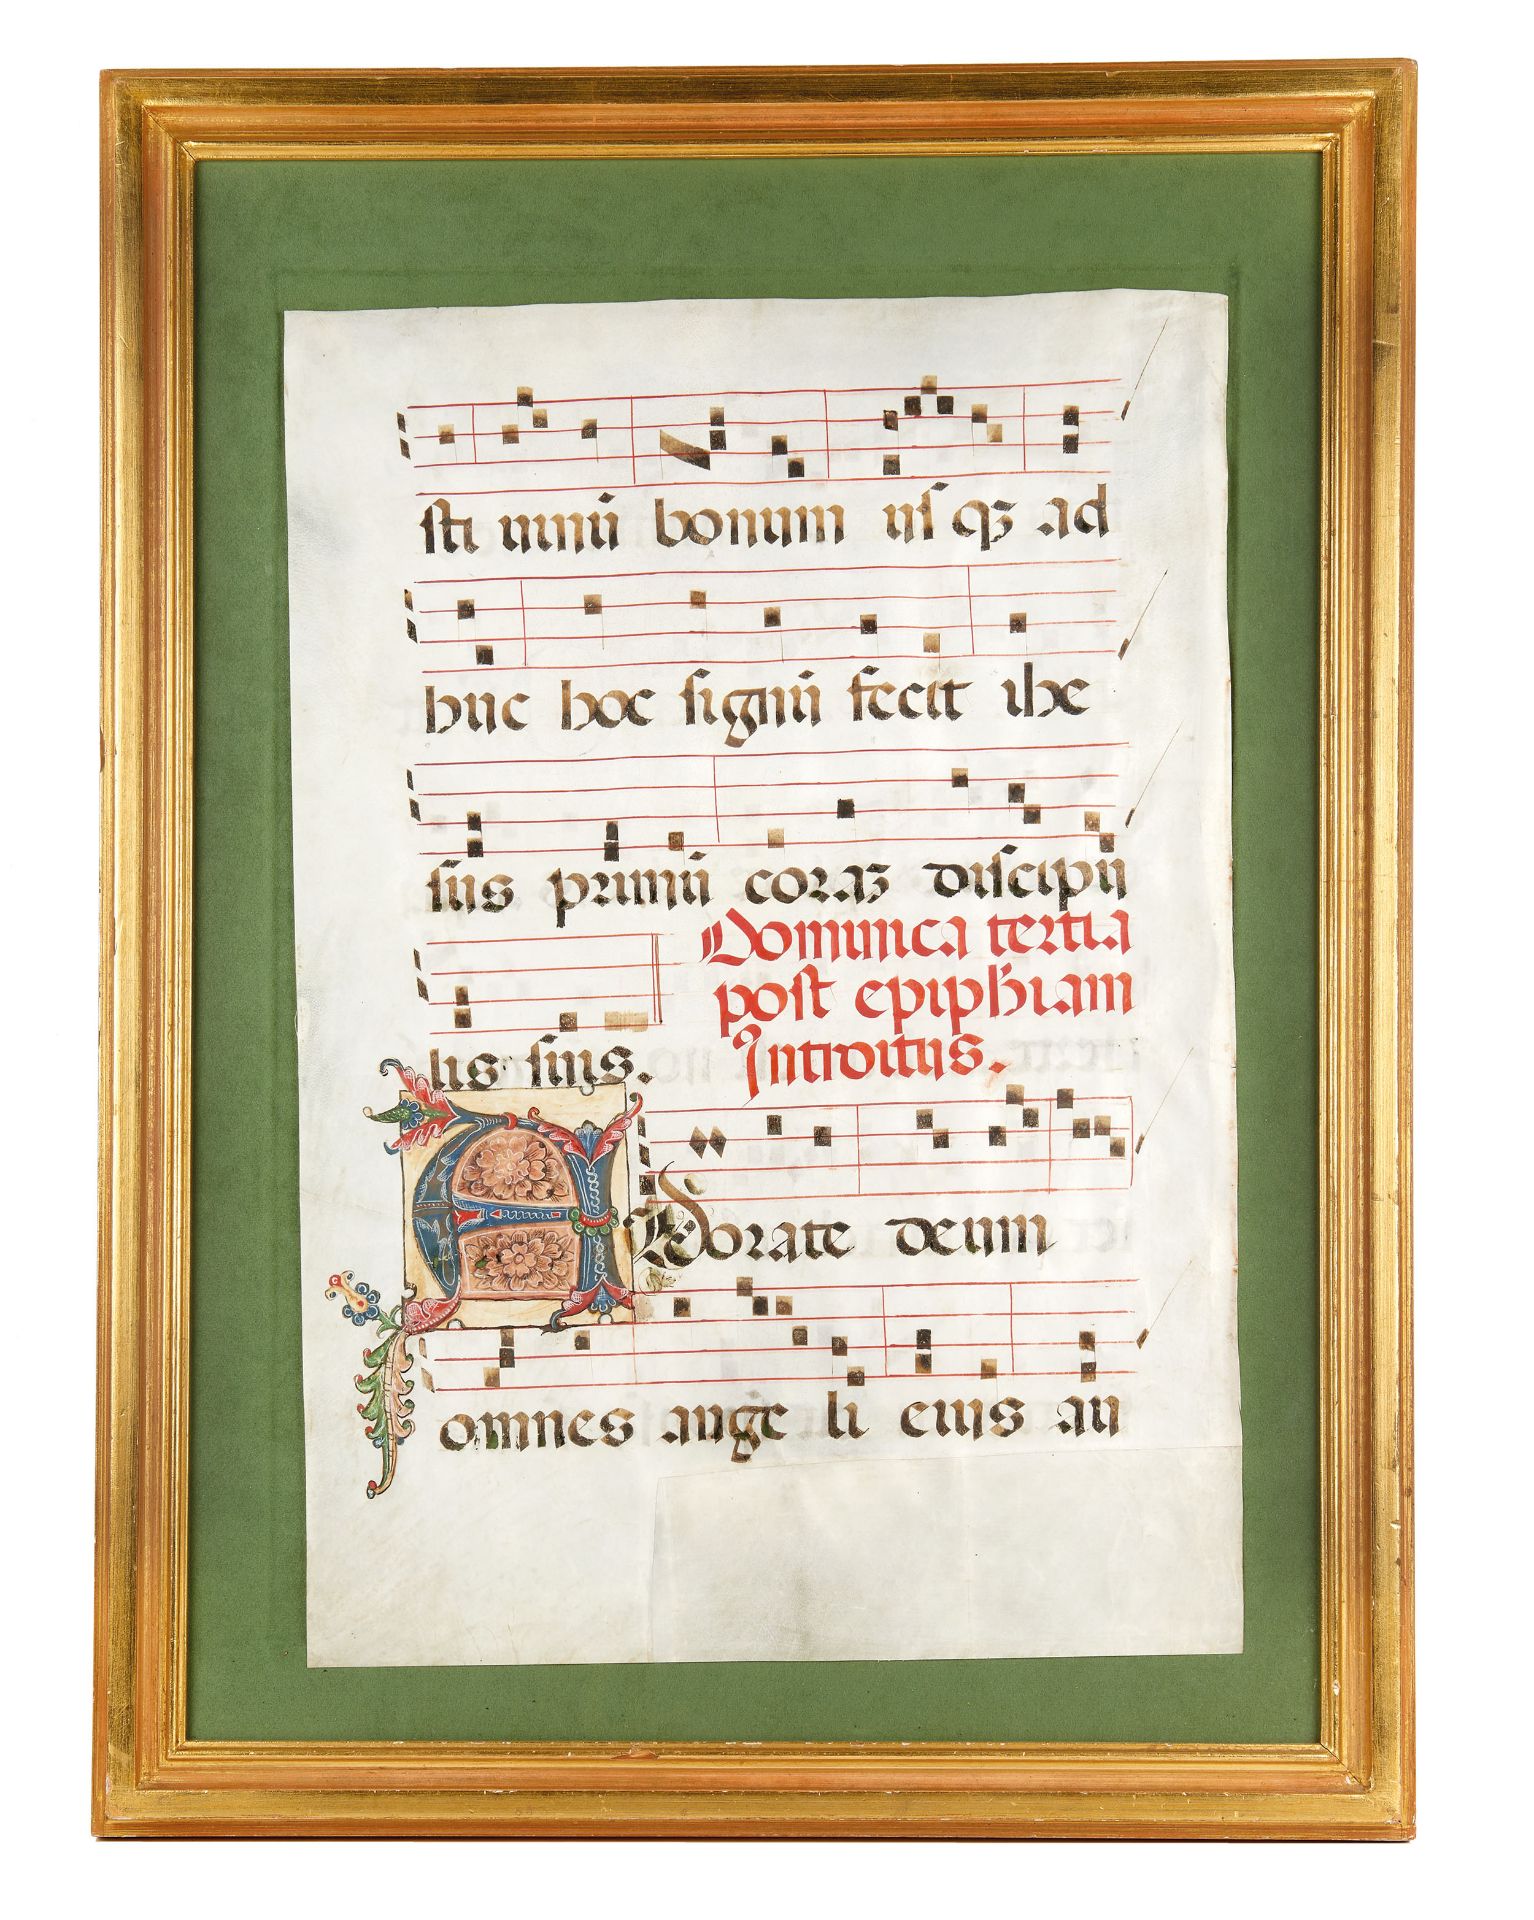 sti uinū bonum usqꝫ ad
huc hoc signū fecit ihe
sus primū coraꝫ discipu
lis suis.
Dominica tertia
post epiphiam
Introitus.
Adorate deum
omnes ange li eius au